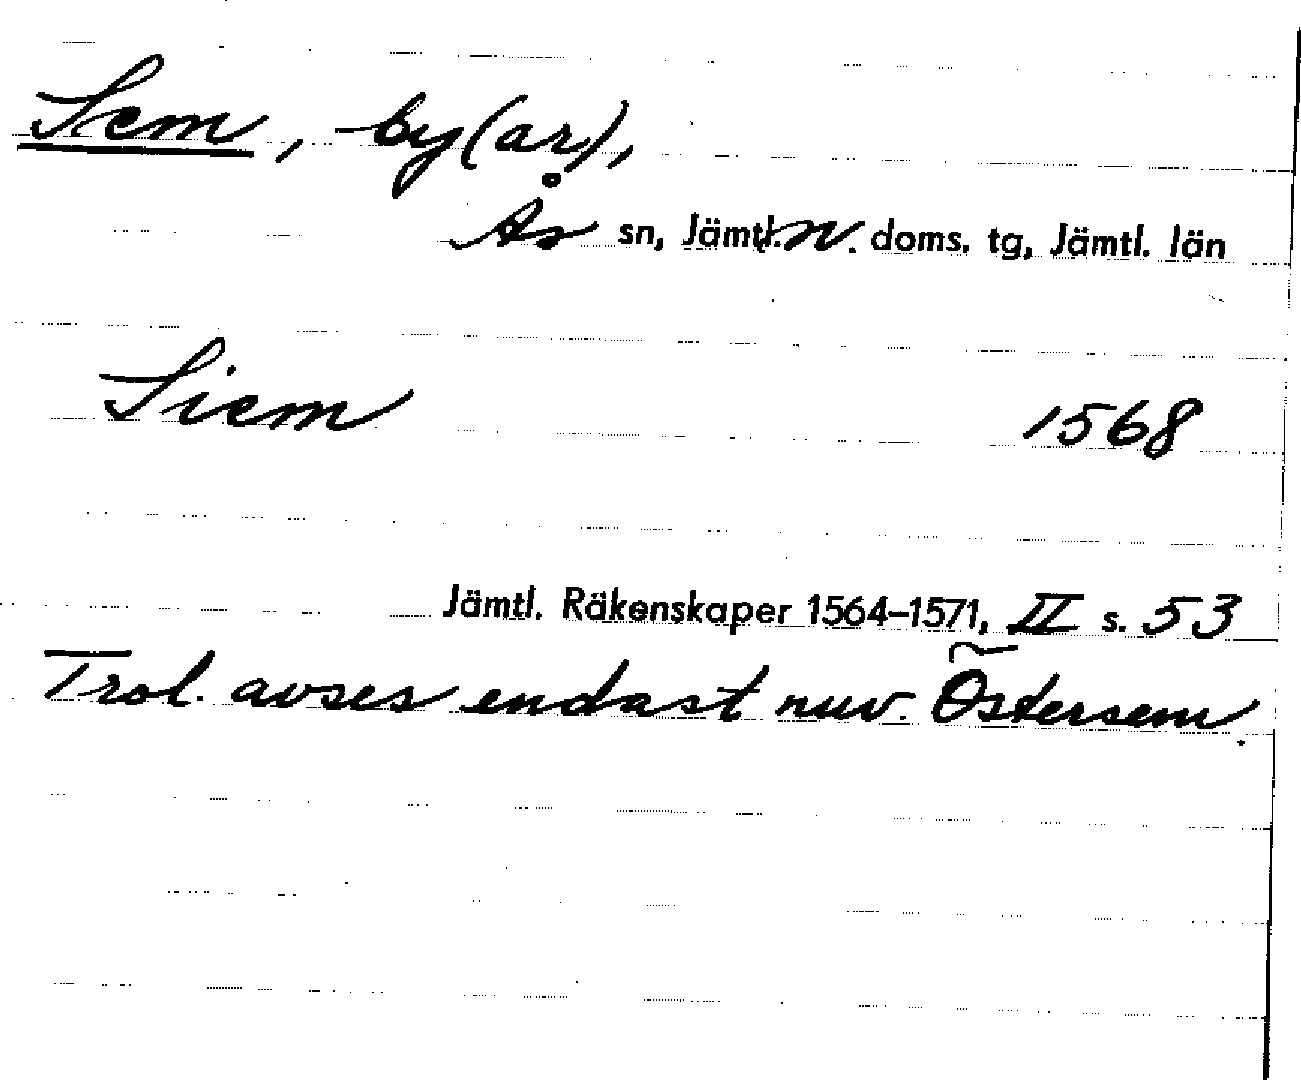 Sem, by(ar),
Ås sn, Jämtl. N. doms. tg, Jämtl. län
Siem 1568
Jämtl. Räkenskaper 1564–1571, II s. 53
Trol. avses endast nuv. Östersem.